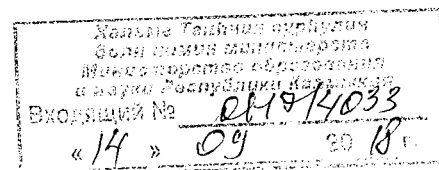 Хальмг Таңһчин сурһулин
болн номин министерств
Министерство образования
и науки Республики Калмыкия
Входящий №
« 14 » 09 20 18 г.